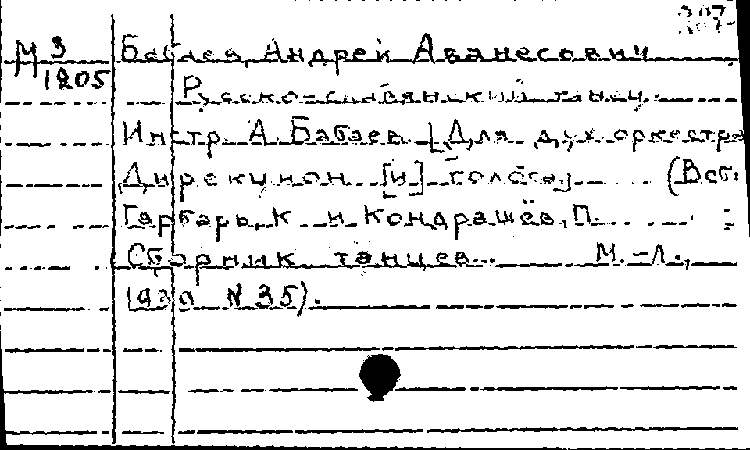 М 3
1205
Бабаев, Андрей Аванесович
Русско-славянский танец.
Инстр. А. Бабаев. [Для дух. оркестра
Дирекцион [и] голоса] (В сб:
Гарбарь, К и Кондрашёв, П.
Сборник танцев... М.-Л.,
N 35).